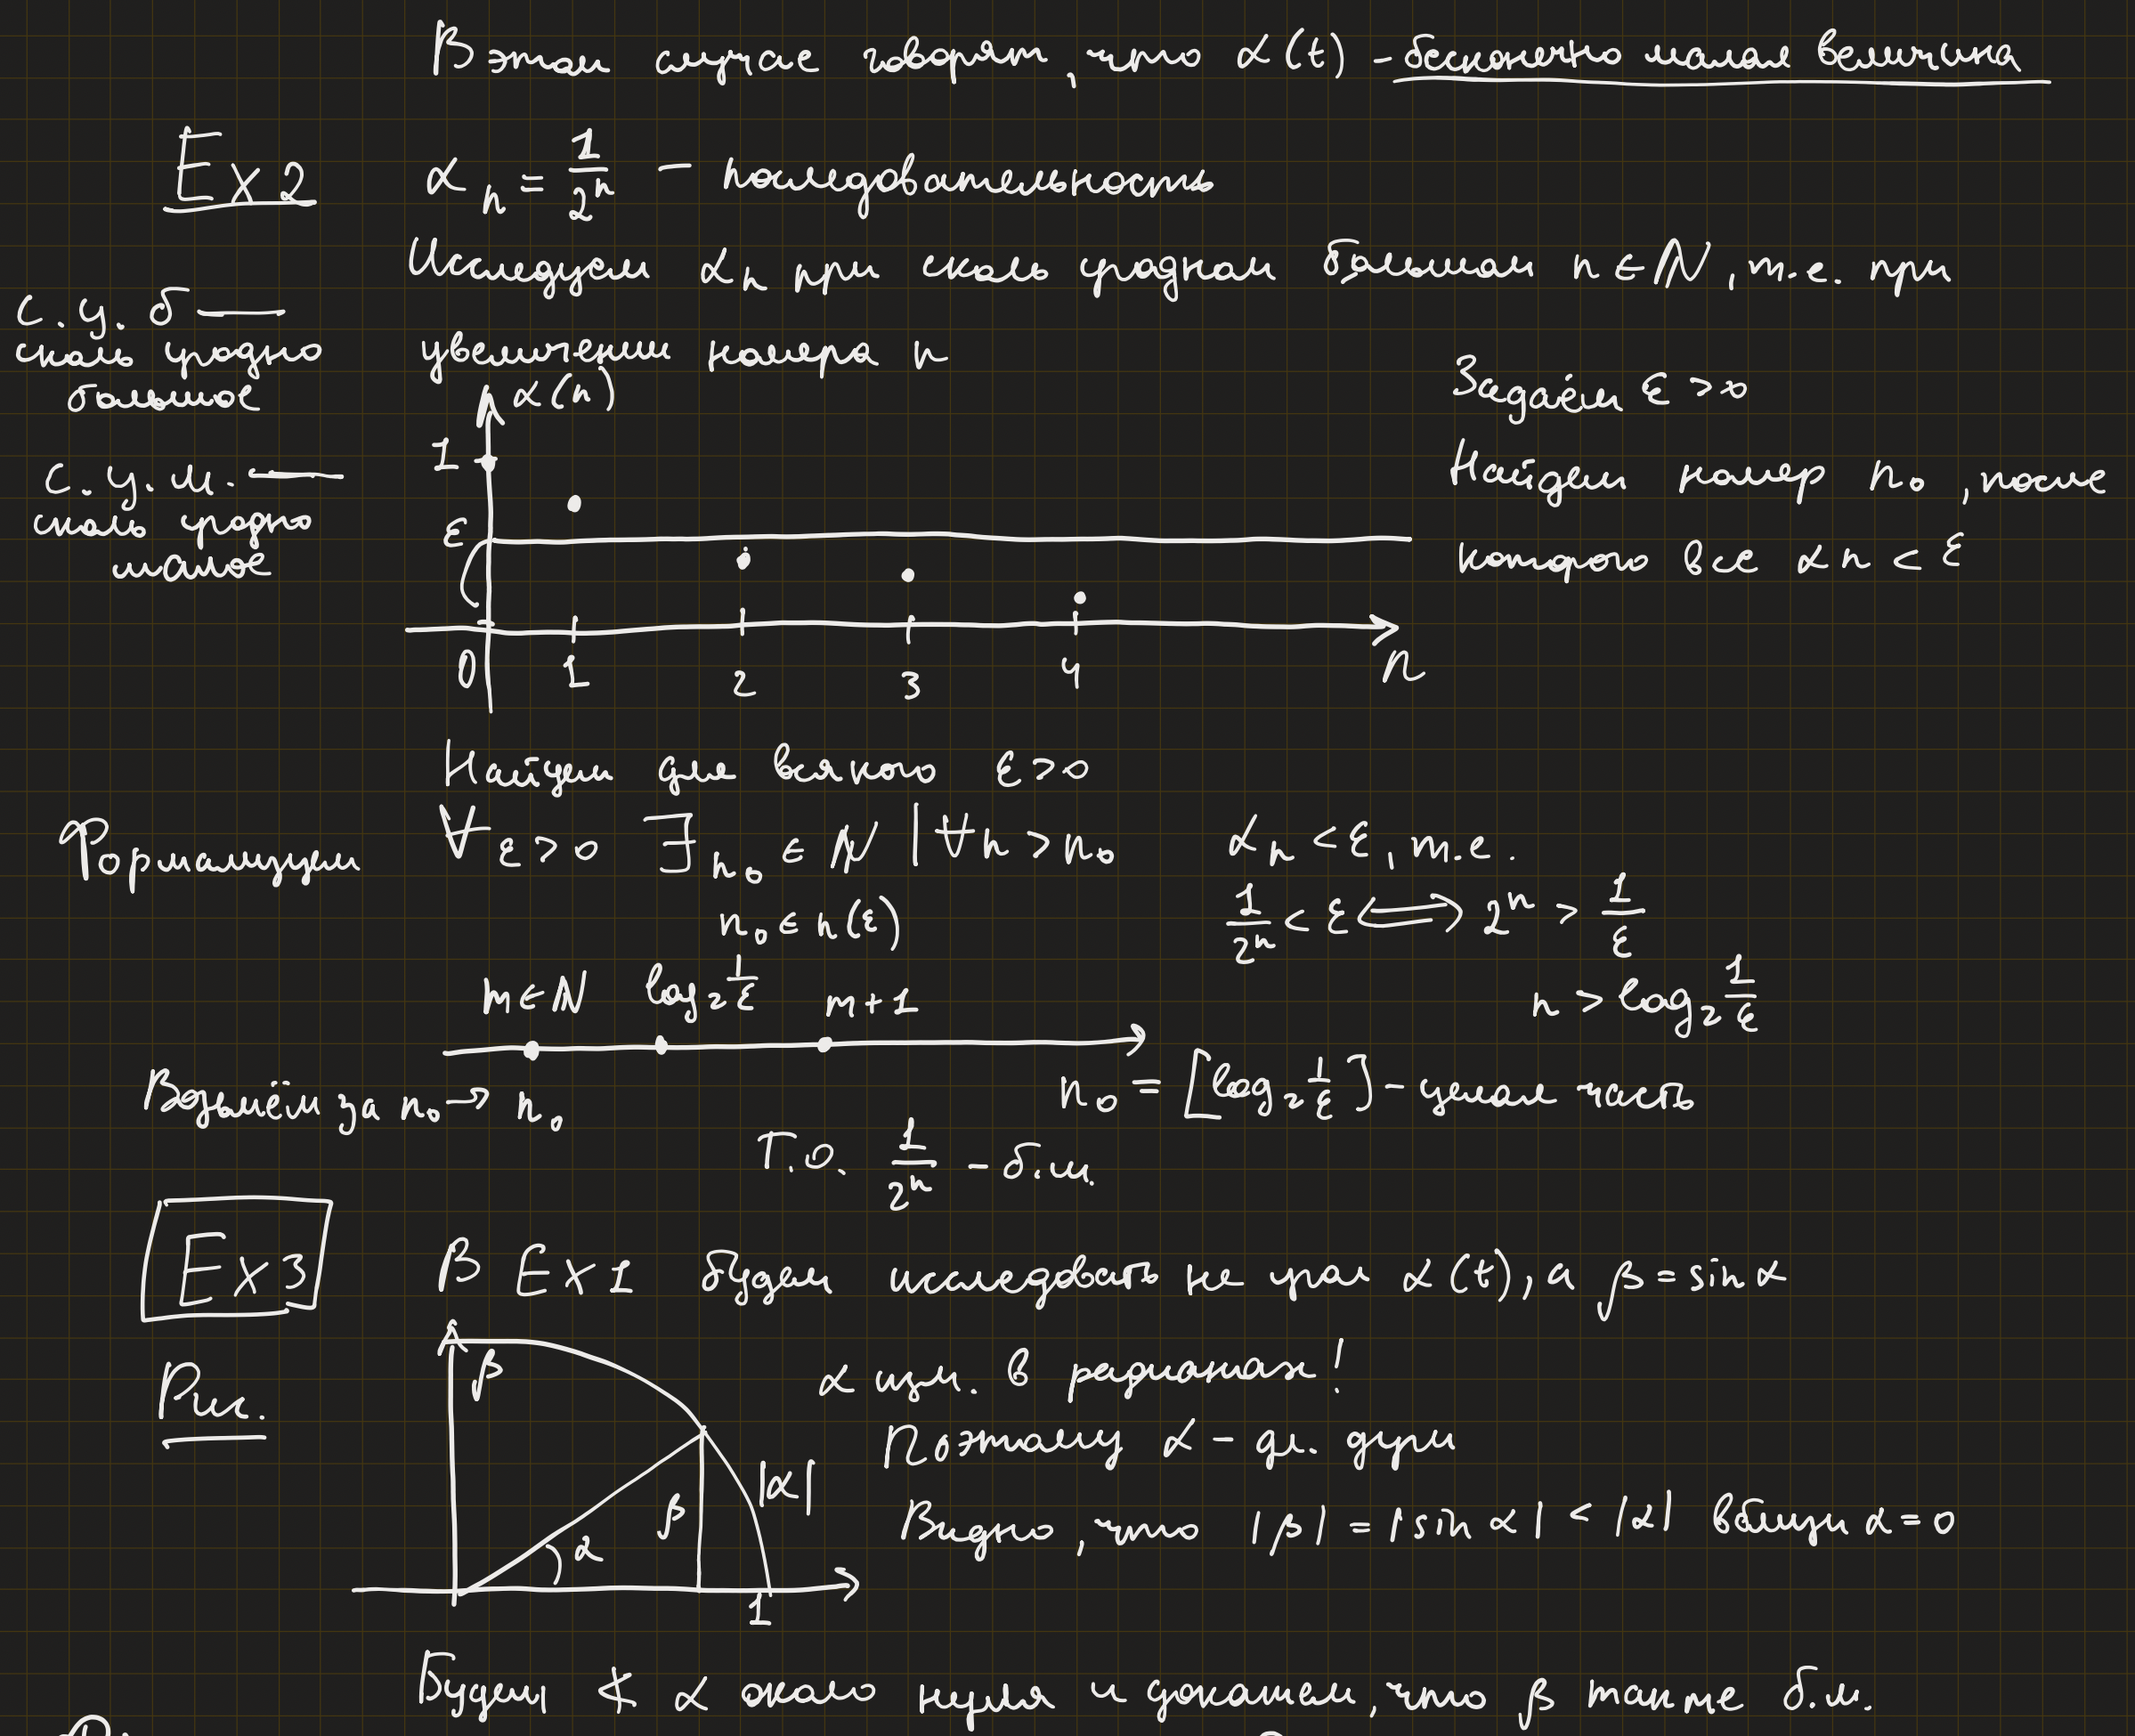 В этом случае говорят, что α(t) – бесконечно малая величина
Ex2 α_n = 1/2^n – последовательность
Исследуем α_n при сколь угодно большом n ∈ N, т.е. при
увеличении номера n
с.у.б —
сколь угодно
большое
с.у.м. —
сколь угодно
малое
α(n)
1
ε
0 1 2 3 4 n
Задаём ε > 0
Найдем номер n_0, после
которого все α_n < ε
Найдем для всякого ε > 0
Формализуем ∀ε > 0 ∃n_0 ∈ N | ∀n > n_0 α_n < ε, т.е.
n_0 ∈ n(ε) 1/2^n < ε ⟺ 2^n > 1/ε
n > log_2 1/ε
m ∈ N log_2 1/ε m+1
Возьмём за n_0 → n_0 n_0 = [log_2 1/ε] – целая часть
Т.О. 1/2^n – б.м.
Ex3 В Ex1 будем исследовать не угол α(t), а β = sin α
Рис.
β
α
β
|α|
1
α изм. в радианах!
Поэтому α – дл. дуги
Видно, что |β| = |sin α| < |α| вблизи α = 0
Будем α около нуля и докажем, что β также б.м.